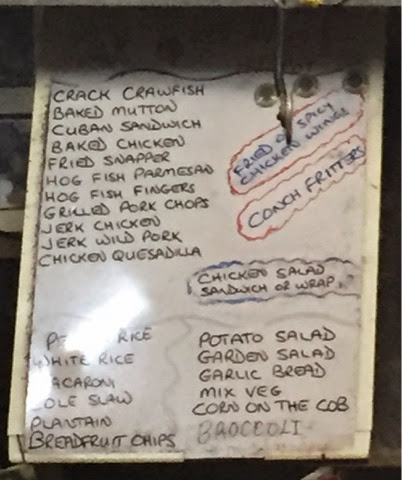 CRACK CRAWFISH
BAKED MUTTON
CUBAN SANDWICH
BAKED CHICKEN
FRIED SNAPPER
HOG FISH PARMESAN
HOG FISH FINGERS
GRILLED PORK CHOPS
JERK CHICKEN
JERK WILD PORK
CHICKEN QUESADILLA
FRIED OR SPICY
CHICKEN WINGS
CONCH FRITTERS
CHICKEN SALAD
SANDWICH OR WRAP
RICE
WHITE RICE
MACARONI
COLE SLAW
PLANTAIN
BREADFRUIT CHIPS
POTATO SALAD
GARDEN SALAD
GARLIC BREAD
MIX VEG
CORN ON THE COB
BROCCOLI